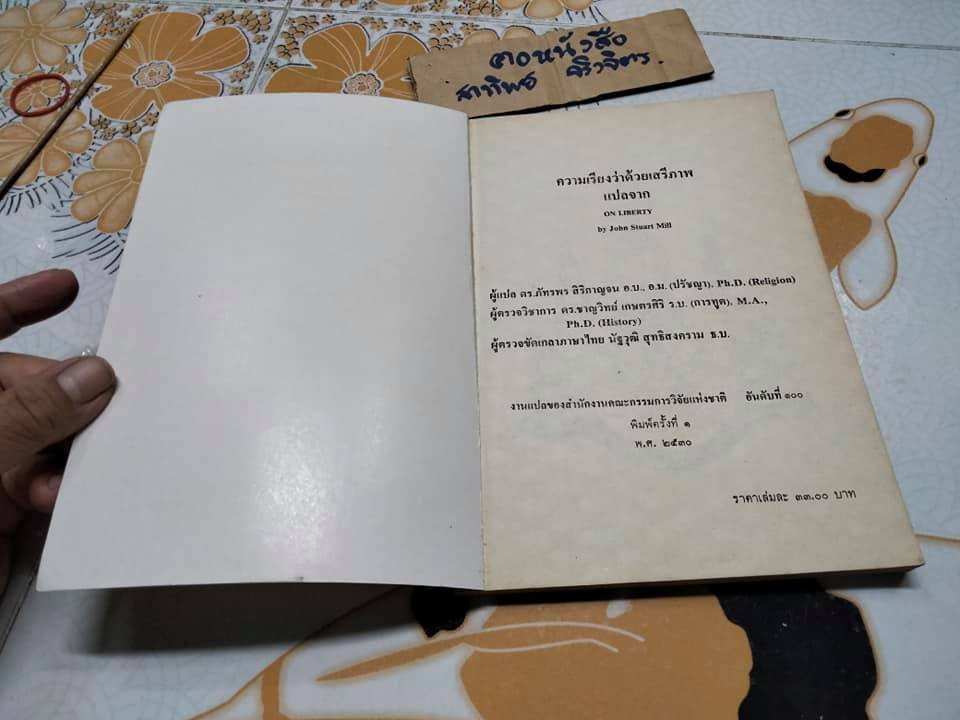 คอหนังสือ
สาทิพย์ ศิริวจิตร.
ความเรียงว่าด้วยเสรีภาพ
แปลจาก
ON LIBERTY
by John Stuart Mill
ผู้แปล ดร.ภัทรพร สิริกาญจน อ.บ., อ.ม. (ปรัชญา), Ph.D. (Religion)
ผู้ตรวจวิชาการ ดร.ชาญวิทย์ เกษตรศิริ ร.บ. (การทูต), M.A.,
Ph.D. (History)
ผู้ตรวจขัดเกลาภาษาไทย นัฐวุฒิ สุทธิสงคราม ธ.บ.
งานแปลของสำนักงานคณะกรรมการวิจัยแห่งชาติ อันดับที่ ๑๐๐
พิมพ์ครั้งที่ ๑
พ.ศ. ๒๕๓๐
ราคาเล่มละ ๓๓.๐๐ บาท